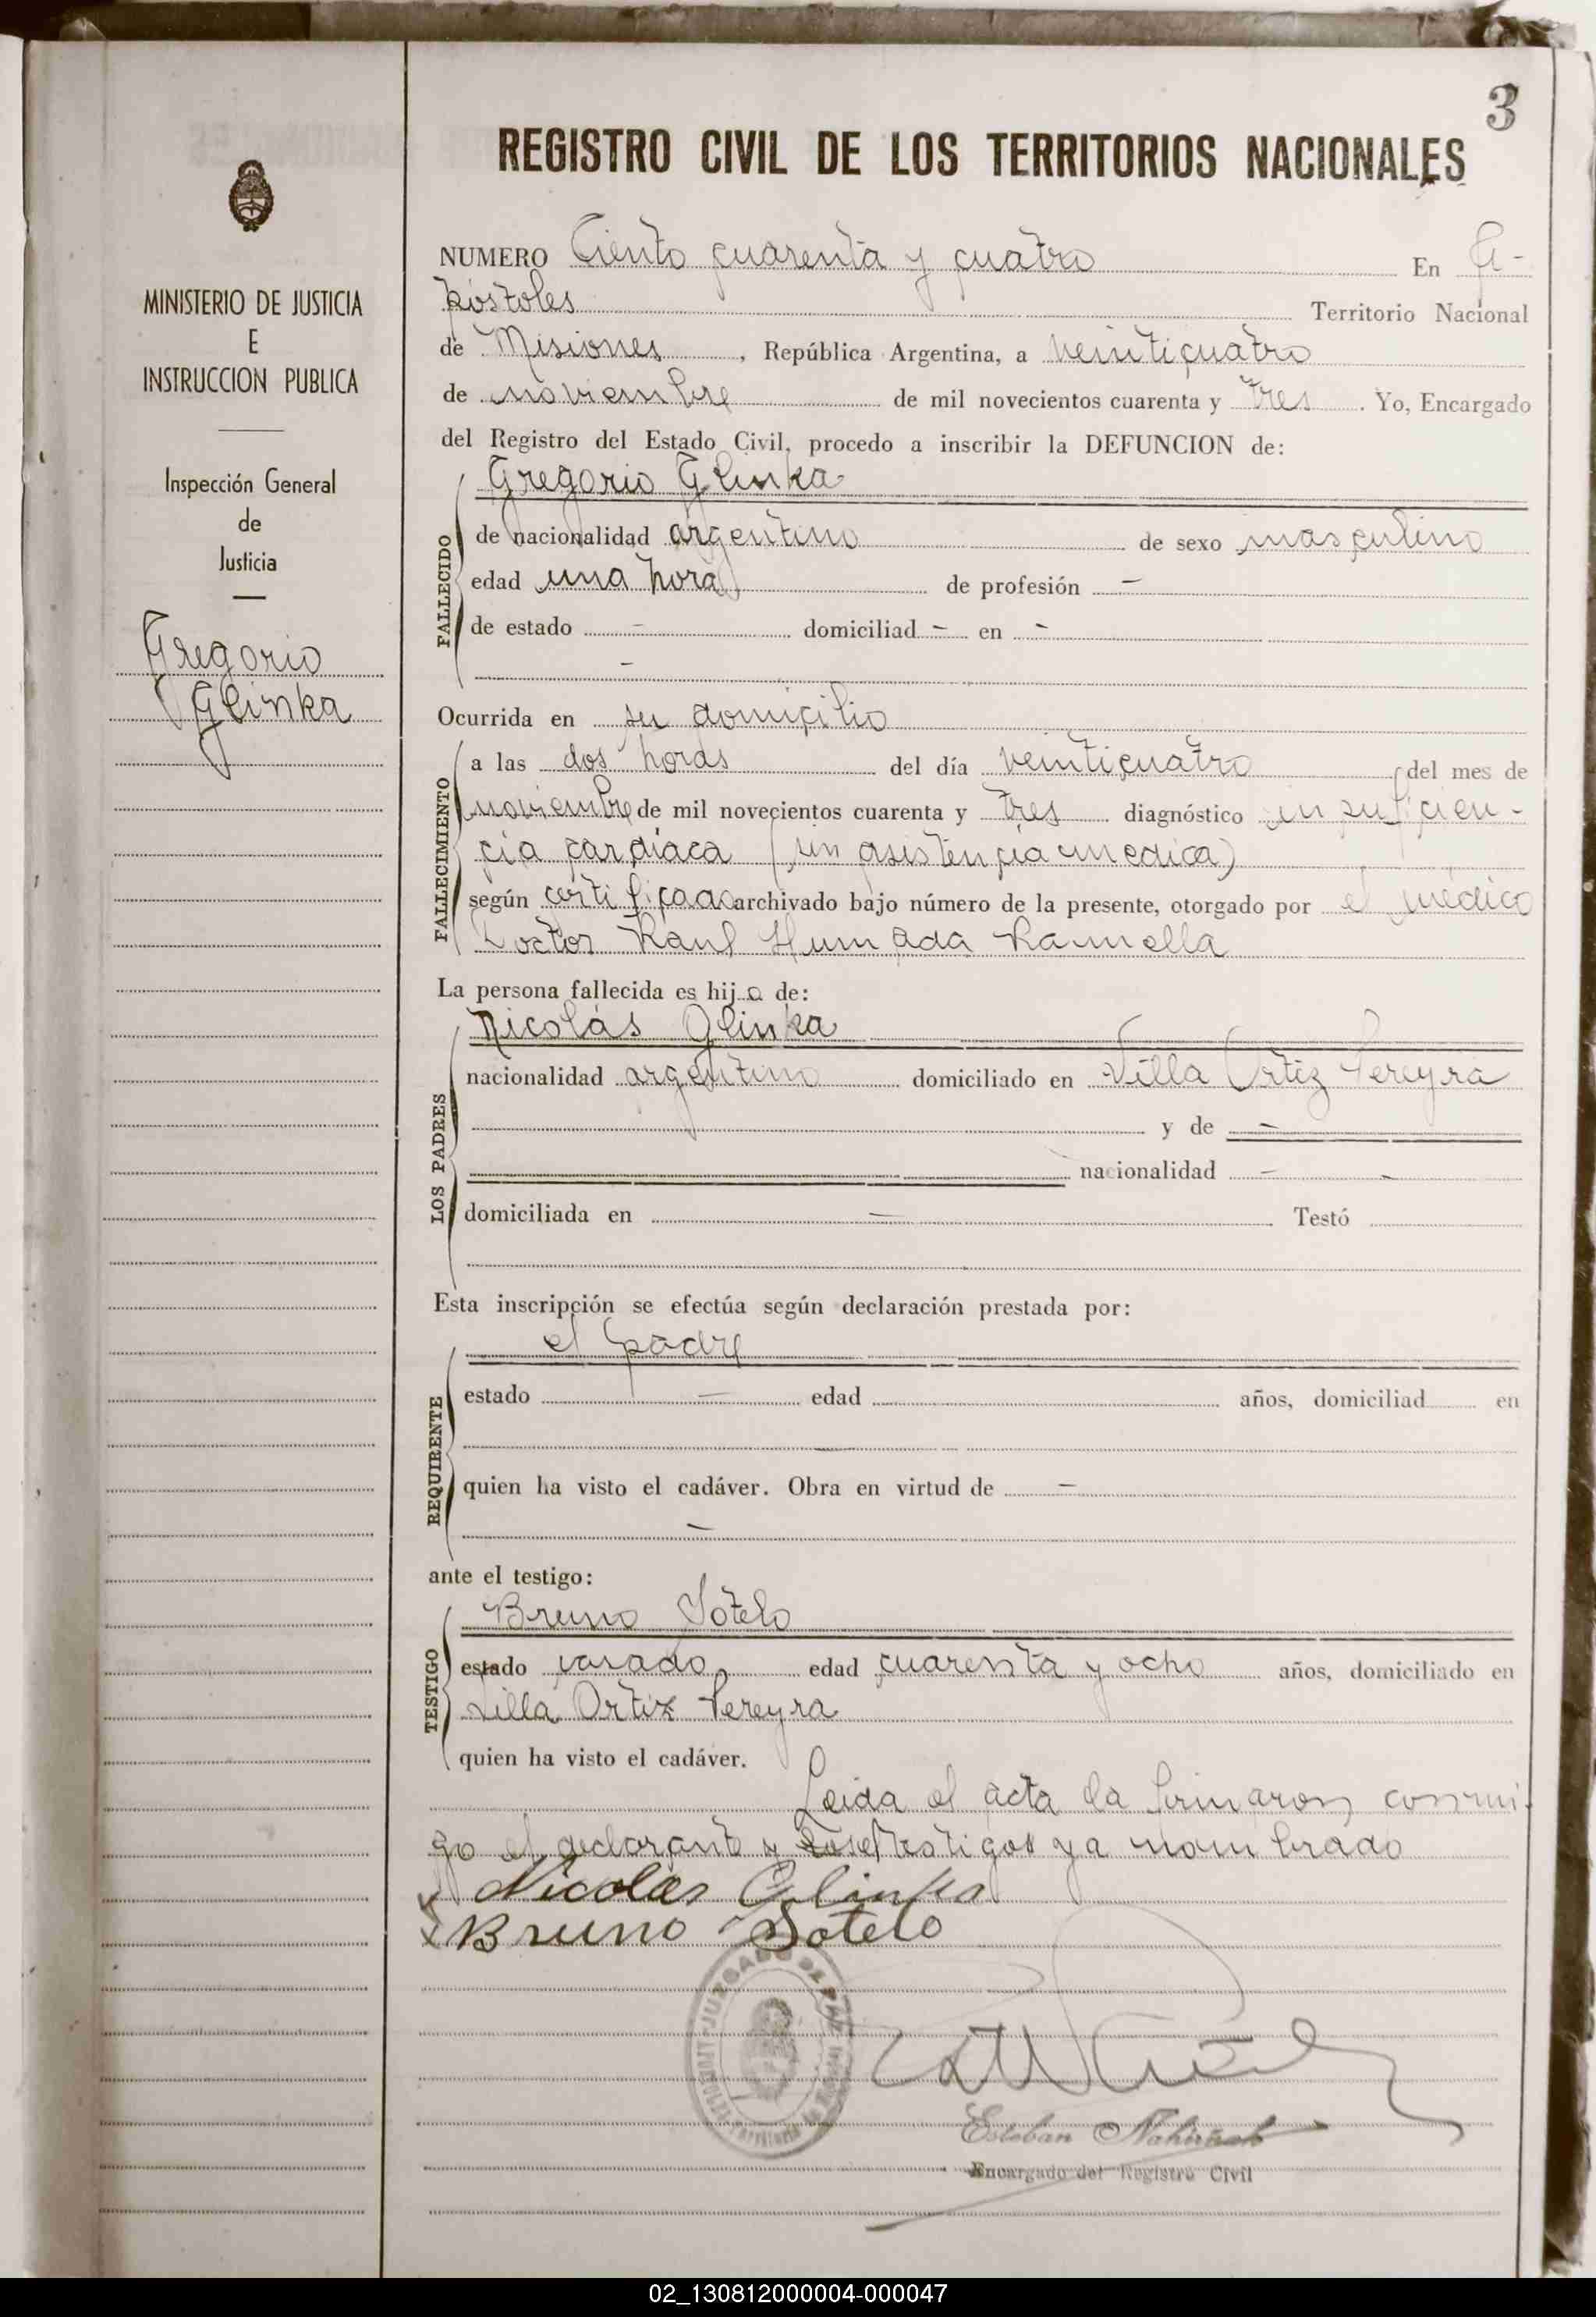 3
REGISTRO CIVIL DE LOS TERRITORIOS NACIONALES
MINISTERIO DE JUSTICIA
E
INSTRUCCION PUBLICA
Inspección General
de
Justicia
Gregorio
Glinka
NUMERO Ciento cuarenta y cuatro En A-
póstoles Territorio Nacional
de Misiones, República Argentina, a veinticuatro
de noviembre de mil novecientos cuarenta y tres. Yo, Encargado
del Registro del Estado Civil, procedo a inscribir la DEFUNCION de:
Gregorio Glinka
FALLECIDO
de nacionalidad argentino de sexo masculino
edad una hora de profesión —
de estado — domiciliad — en —
—
Ocurrida en su domicilio
FALLECIMIENTO
a las dos horas del día veinticuatro del mes de
noviembre de mil novecientos cuarenta y tres diagnóstico insuficien-
cia cardíaca (sin asistencia medica)
según certificado archivado bajo número de la presente, otorgado por el médico
Doctor Raul Humada Ramella
La persona fallecida es hijo de:
Nicolás Glinka
LOS PADRES
nacionalidad argentino domiciliado en Villa Ortiz Pereyra
y de —
nacionalidad —
domiciliada en — Testó
Esta inscripción se efectúa según declaración prestada por:
el padre
REQUIRENTE
estado — edad años, domiciliad en
—
quien ha visto el cadáver. Obra en virtud de —
—
ante el testigo:
Bruno Sotelo
TESTIGO
estado casado edad cuarenta y ocho años, domiciliado en
Villa Ortiz Pereyra
quien ha visto el cadáver.
Leida el acta la firmaron conmi-
go el declarante y testigo ya nombrado
Nicolás Glinka
Bruno Sotelo
JUZGADO DE PAZ
APOSTOLES Territorio de Misiones
Esteban Nahirñak
Encargado del Registro Civil
02_130812000004-000047